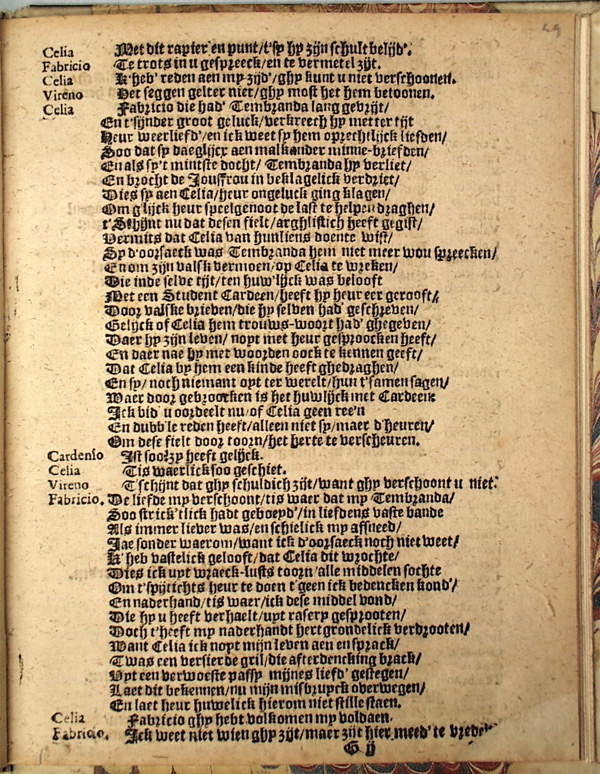 29
Celia Met dit rapier en punt/t'sy hy zijn schult belijd'.
Fabricio Te trots in u gespreeck/en te vermetel zijt.
Celia K'heb' reden aen my zijd'/ghy kunt u niet verschoonen.
Vireno Het seggen gelter niet/ghy most het hem betoonen.
Celia Fabricio die had' Tembranda lang gevrijt/
En t'sijnder groot geluck/verkreech hy metter tijt
Heur weerliefd'/en ick weet sy hem oprechtlijck liefden/
Soo dat sy daeglijcx aen malkander minne-briefden/
En als sy't mintste docht/ Tembranda hy verliet/
En brocht de Jouffrou in beklagelick verdriet/
Dies sy aen Celia/heur ongeluck ging klagen/
Om g'lijck heur speelgenoot de last te helpen draghen/
t'Schijnt nu dat desen fielt/arghlistich heeft gegist/
Vermits dat Celia van hunliens doente wist/
Sy d'oorsaeck was Tembranda hem niet meer wou spreecken/
En om zijn valsk vermoen/op Celia te wreken/
Die inde selve tijt/ten huw'lijck was belooft
Met een Student Cardeen/heeft hy heur eer gerooft/
Door valske brieven/die hy selven had' geschreven/
Gelijck of Celia hem trouws-woort had' ghegeven/
Daer hy zijn leven/ noyt met heur gesproocken heeft/
En daer nae hy met woorden oock te kennen geeft/
Dat Celia by hem een kinde heeft ghedraghen/
En sy/ noch niemant oyt ter werelt/hun t'samen sagen/
Waer door gebroocken is het huwlijck met Cardeen:
Ick bid' u oordeelt nu/of Celia geen ree'n
En dubb'le reden heeft/alleen niet sy/maer d'heuren/
Om dese fielt door toorn/het herte te verscheuren.
Cardenio Ist soo? zy heeft gelijck.
Celia Tis waerlick soo geschiet.
Vireno T'schijnt dat ghy schuldich zijt/want ghy verschoont u niet.
Fabricio. De liefde my verschoont/tis waer dat my Tembranda/
Soo strick'tlick hadt geboeyd'/in liefdens vaste bande
Als immer liever was/en schielick my afsneed/
Jae sonder waerom/want ick d'oorsaeck noch niet weet/
K'heb vastelick gelooft/dat Celia dit wrochte/
Dies ick uyt wraeck-lusts toorn/alle middelen sochte
Om t'spijtichts heur te doen t'geen ick bedencken kond'/
En naderhand/tis waer/ick dese middel vond/
Die hy u heeft verhaelt/uyt rasery gesprooten/
Doch t'heeft my naderhandt hert grondelick verdrooten/
Want Celia ick noyt mijn leven aen en sprack/
T'was een versierde gril/die afterdencking brack/
Uyt een verwoeste passy mijnes liefd' gestegen/
Laet dit bekennen/nu mijn misbruyck overwegen/
En laet heur huwelick hierom niet stille staen.
Celia Fabricio ghy hebt volkomen my voldaen.
Fabricio. Ick weet niet wien ghy zijt/maer zijt hier meed' te vreden
G ij